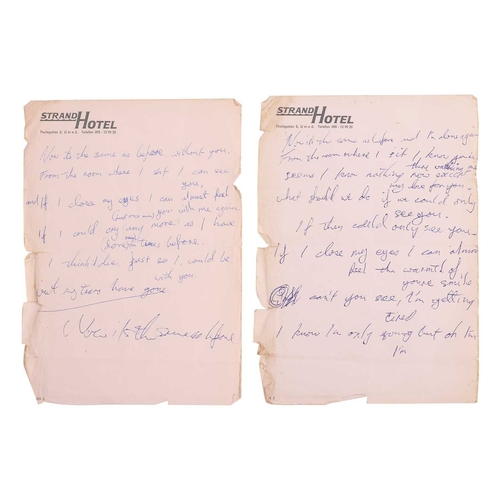 STRAND HOTEL
Now its the same as before without you.
From the room where I sit I can see
you,
and If I close my eyes I can almost feel
you with me again
If I could cry any more as I have
done before.
I think I die, just so I could be
with you
but my tears have gone
(Now its the same as before
STRAND HOTEL
Now its the same as before and I'm alone again
From the room where I sit I know you're
there
seems I know nothing now except
my love for you.
what should we do if we could only
see you.
If they could only see you
If I close my eyes I can almost
feel the warmth of
your smile
can't you see, I'm getting
tired
I know I'm only young but oh I'm
I'm